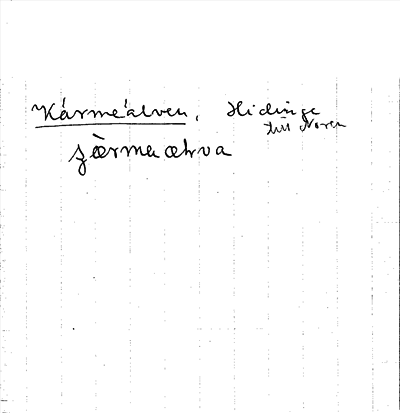 Kärmeälven, Hidinge
till Noren
järmaælva